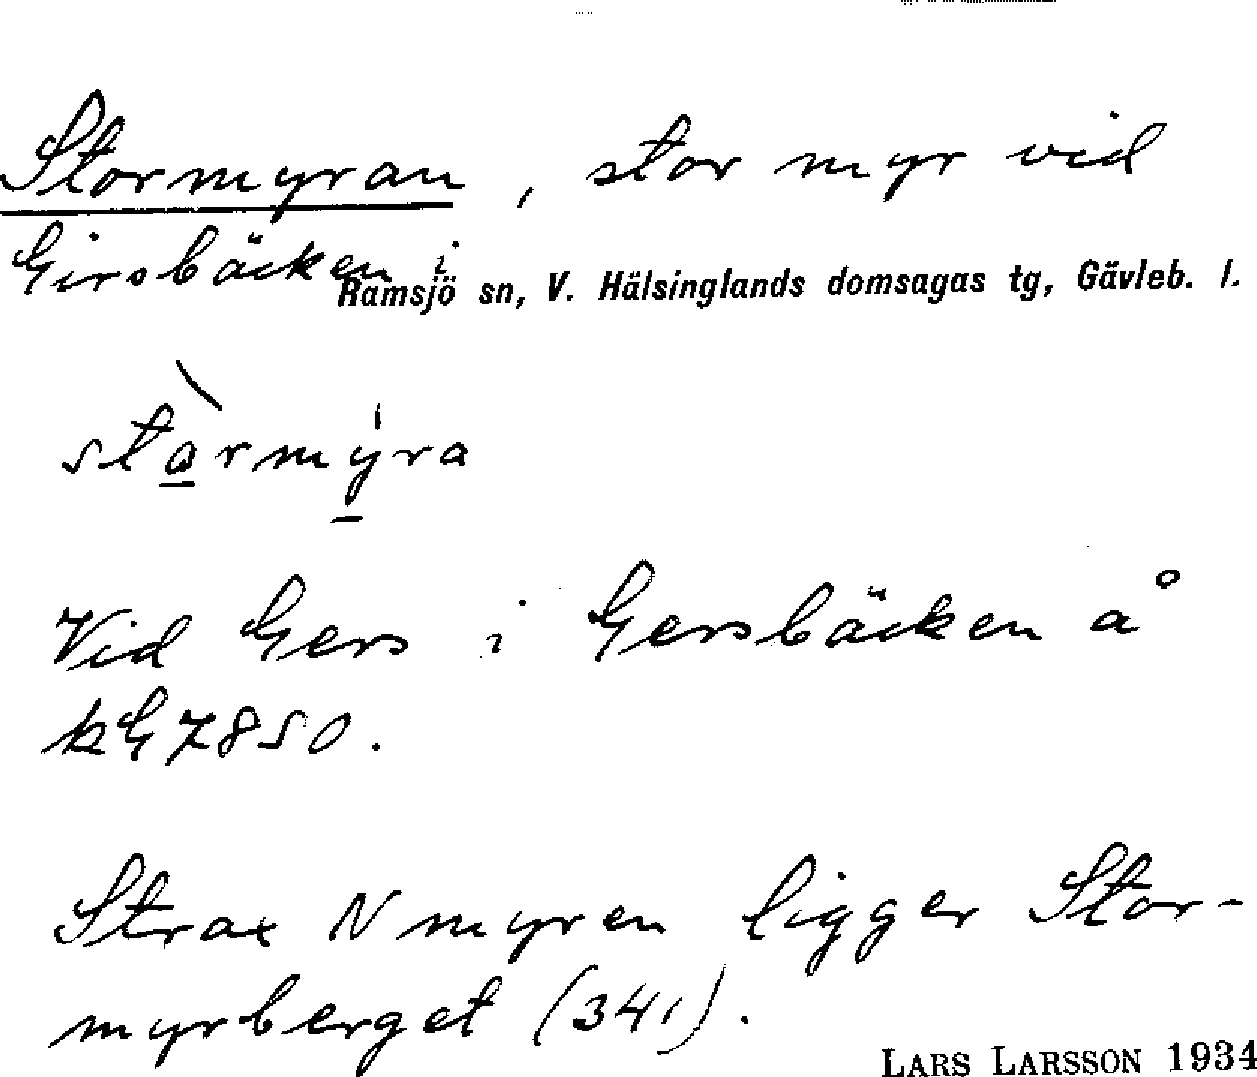 Stormyran, stor myr vid
Girsbäcken i
Ramsjö sn, V. Hälsinglands domsagas tg, Gävleb. l.
stàrmýra
Vid Gers i Gersbäcken å
kG7850.
Strax N myren ligger Stor-
myrberget (341).
LARS LARSSON 1934